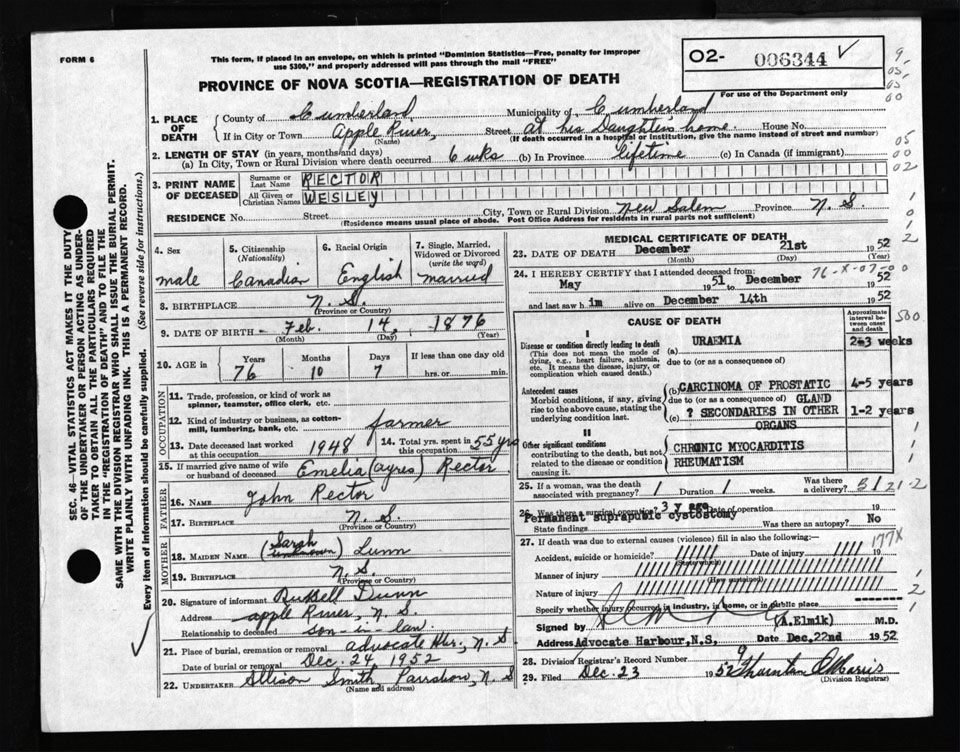 FORM 6
This form, if placed in an envelope, on which is printed "Dominion Statistics—Free, penalty for improper
use $300," and properly addressed will pass through the mail "FREE"
PROVINCE OF NOVA SCOTIA—REGISTRATION OF DEATH
O2- 006344 ✓
For use of the Department only
9
05
03
00
1. PLACE OF DEATH
County of Cumberland Municipality of Cumberland
If in City or Town Apple River, Street At his Daughters home. House No.
(Name) (If death occurred in a hospital or institution, give the name instead of street and number)
2. LENGTH OF STAY (in years, months and days)
(a) In City, Town or Rural Division where death occurred 6 wks (b) In Province Lifetime (c) In Canada (if immigrant)
05
00
02
3. PRINT NAME OF DECEASED
Surname or Last Name RECTOR
All Given or Christian Names WESLEY
RESIDENCE No. Street City, Town or Rural Division New Salem Province N. S.
(Residence means usual place of abode. Post Office Address for residents in rural parts not sufficient)
1
0
1
2
4. Sex male
5. Citizenship (Nationality) Canadian
6. Racial Origin English
7. Single, Married, Widowed or Divorced (write the word) married
8. BIRTHPLACE N. S.
(Province or Country)
9. DATE OF BIRTH - Feb. 14, 1876
(Month) (Day) (Year)
10. AGE in Years 76 Months 10 Days 7 If less than one day old hrs. or min.
OCCUPATION
11. Trade, profession, or kind of work as
spinner, teamster, office clerk, etc.
12. Kind of industry or business, as cotton-
mill, lumbering, bank, etc. farmer
13. Date deceased last worked
at this occupation 1948
14. Total yrs. spent in
this occupation 55 yrs
15. If married give name of wife
or husband of deceased Emelia (Ayres) Rector
FATHER
16. NAME John Rector
17. BIRTHPLACE N. S.
(Province or Country)
MOTHER
18. MAIDEN NAME (Sarah unknown) Lunn
19. BIRTHPLACE N. S.
(Province or Country)
20. Signature of informant Russell Dunn
Address apple River, N. S.
Relationship to deceased son-in-law.
21. Place of burial, cremation or removal advocate Hbr., N. S
Date of burial or removal Dec. 24, 1952
22. UNDERTAKER Allison Smith, Parrsboro, N. S
(Name and address)
MEDICAL CERTIFICATE OF DEATH
23. DATE OF DEATH December 21st 1952
(Month) (Day) (Year)
24. I HEREBY CERTIFY that I attended deceased from: 76-X-07-00
May 1951 to December 1952
and last saw him alive on December 14th 1952
CAUSE OF DEATH
Approximate interval between onset and death
500
I
Disease or condition directly leading to death
(This does not mean the mode of
dying, e.g., heart failure, asthenia,
etc. It means the disease, injury, or
complication which caused death.)
(a) URAEMIA 2-3 weeks
due to (or as a consequence of)
Antecedent causes
Morbid conditions, if any, giving
rise to the above cause, stating the
underlying condition last.
(b) CARCINOMA OF PROSTATIC 4-5 years
due to (or as a consequence of) GLAND
(c) ? SECONDARIES IN OTHER 1-2 years
ORGANS
II
Other significant conditions
contributing to the death, but not
related to the disease or condition
causing it.
CHRONIC MYOCARDITIS
RHEUMATISM
25. If a woman, was the death
associated with pregnancy? / Duration / weeks. Was there a delivery? B121-2
26. Was there a surgical operation? 3 y ago Date of operation
Permanent suprapubic cystostomy
State findings Was there an autopsy? No
27. If death was due to external causes (violence) fill in also the following:—
177X
Accident, suicide or homicide? ////// Date of injury //// 19
(State which)
Manner of injury
(How sustained)
Nature of injury
Specify whether injury occurred in industry, in home, or in public place
Signed by (A.Elmik) M.D.
Address Advocate Harbour,N.S, Date Dec.22nd 1952
28. Division Registrar's Record Number 9
29. Filed Dec. 23 1952 Thornton Morris
(Division Registrar)
SEC. 46—VITAL STATISTICS ACT MAKES IT THE DUTY
OF THE UNDERTAKER OR PERSON ACTING AS UNDER-
TAKER TO OBTAIN ALL THE PARTICULARS REQUIRED
IN THE "REGISTRATION OF DEATH" AND TO FILE THE
SAME WITH THE DIVISION REGISTRAR WHO SHALL ISSUE THE BURIAL PERMIT.
WRITE PLAINLY WITH UNFADING INK. THIS IS A PERMANENT RECORD.
Every item of information should be carefully supplied. (See reverse side for instructions.)